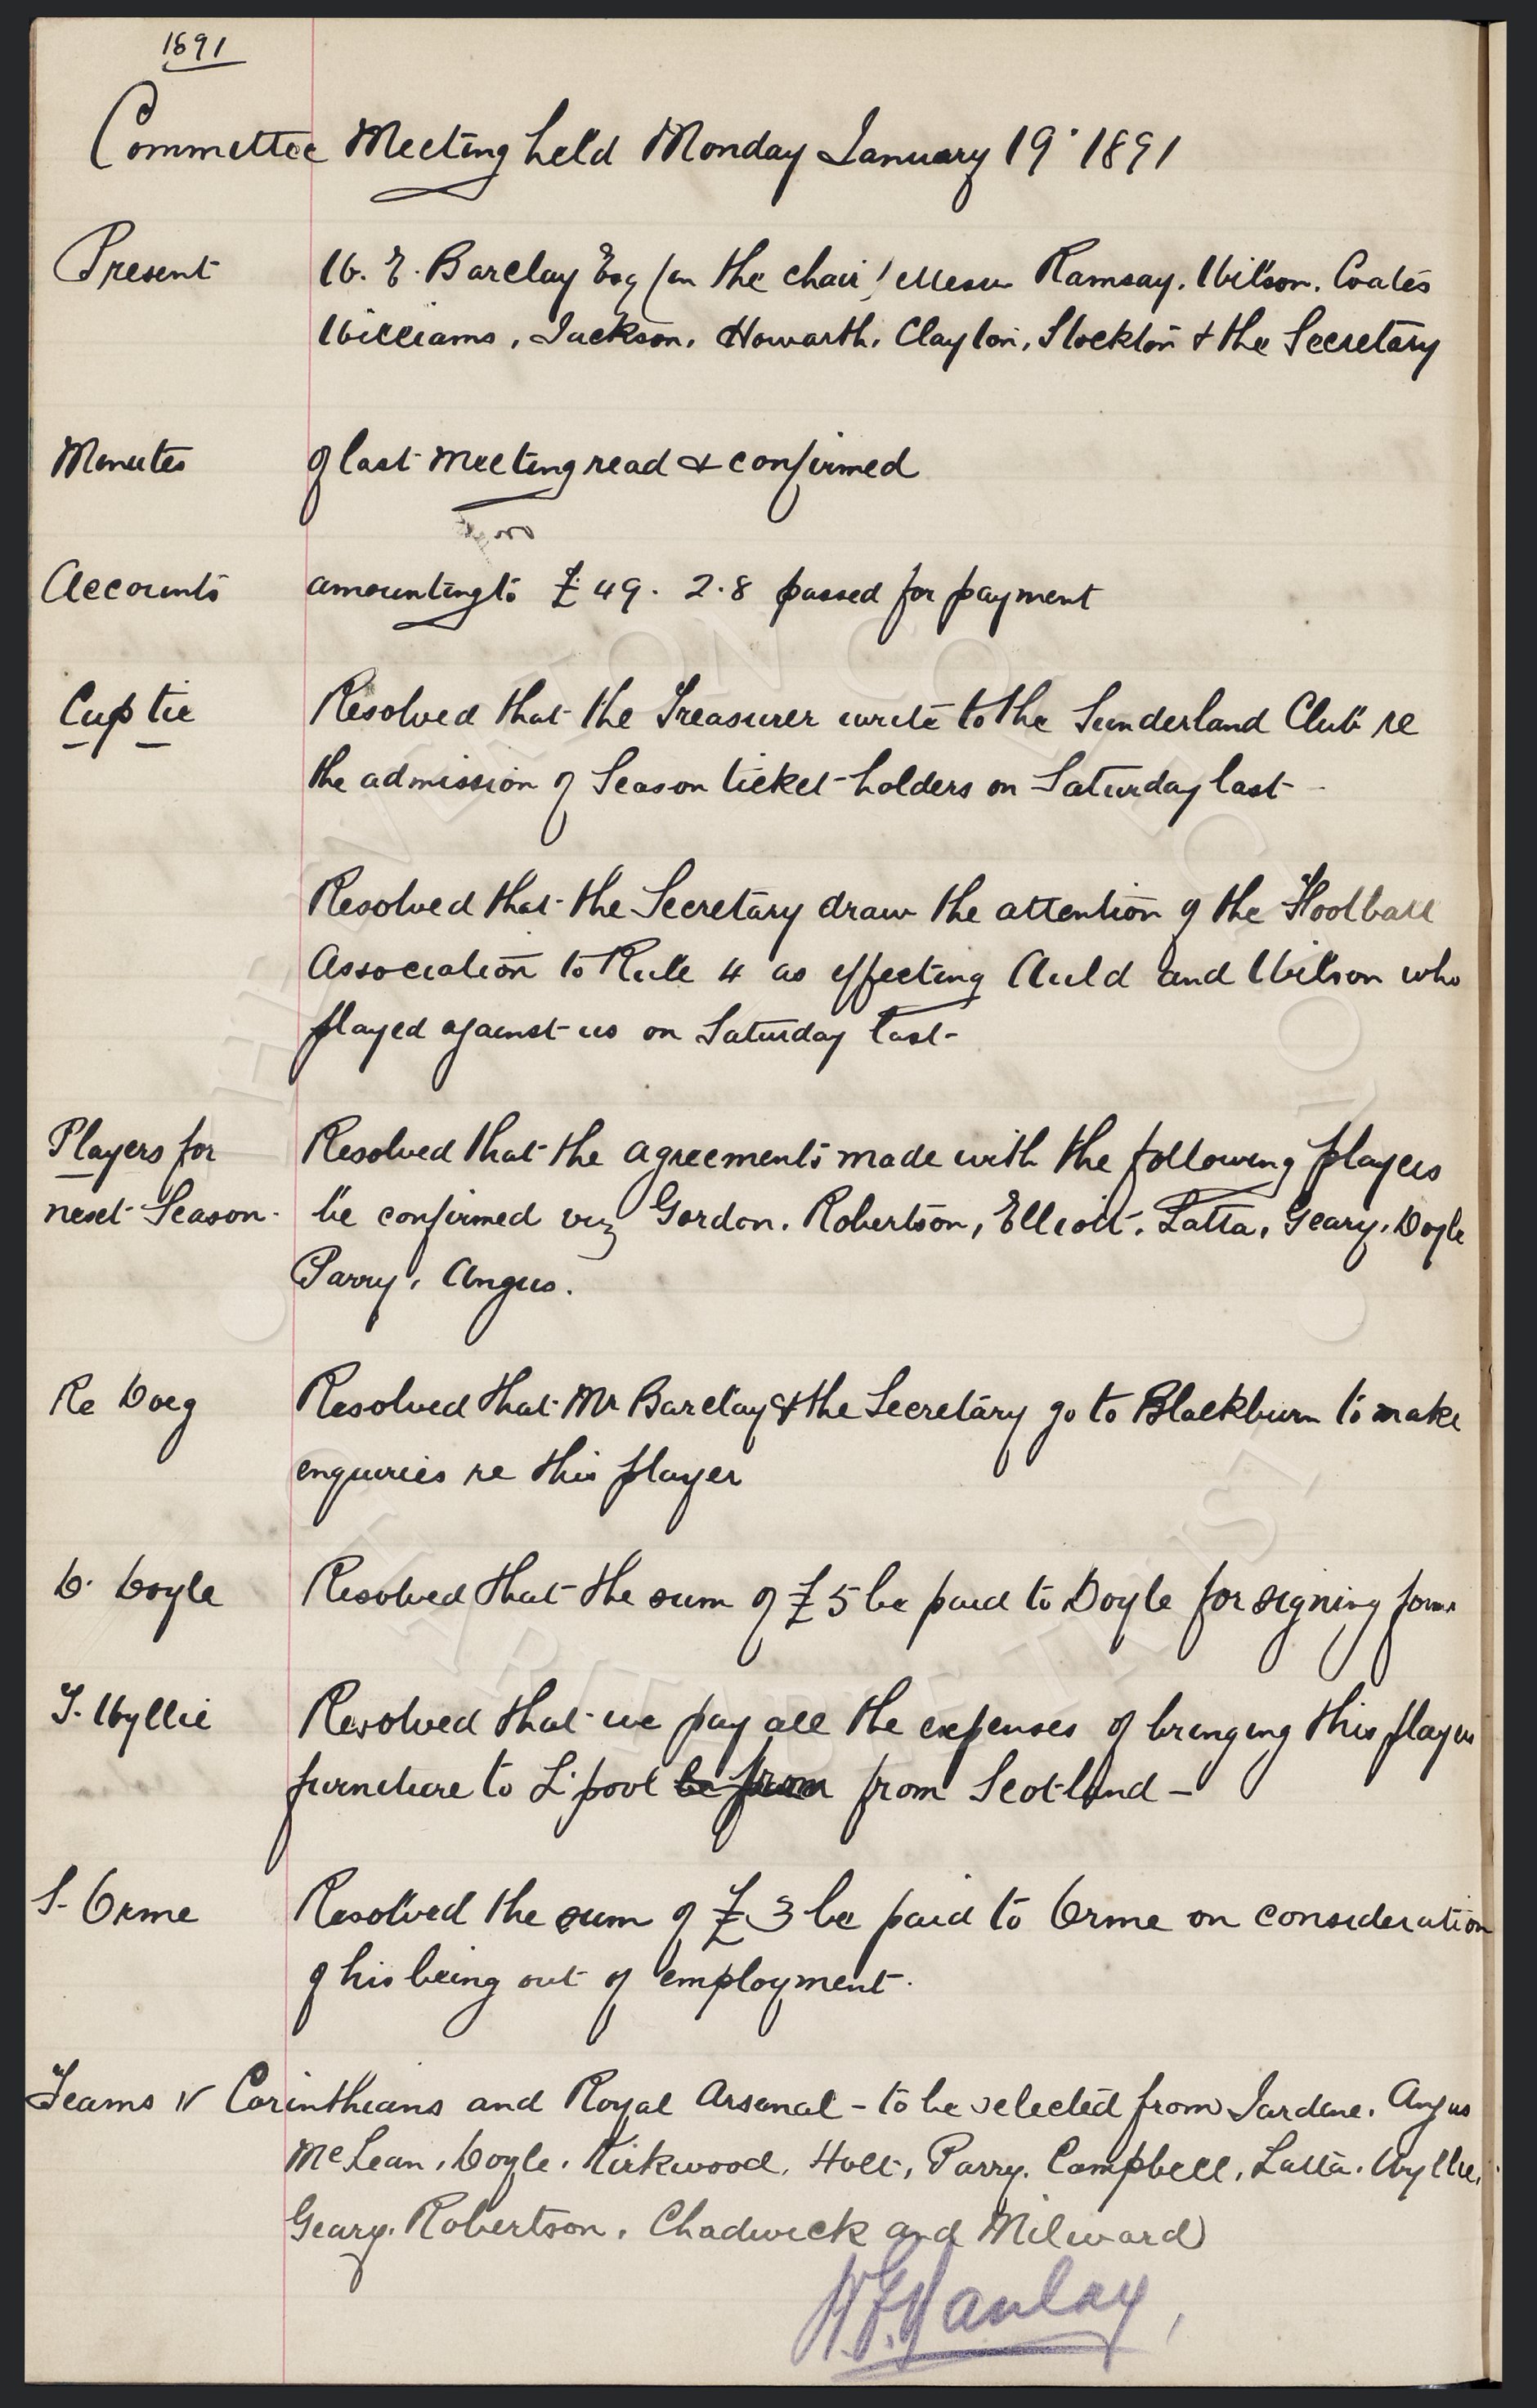 1891
Committee Meeting held Monday January 19 1891
Present W. E. Barclay Esq (in the chair) Messrs Ramsay. Wilson. Coates
Williams, Jackson. Howarth. Clayton, Stockton & the Secretary
Minutes of last meeting read & confirmed
Accounts amounting to £49. 2. 8 passed for payment
Cup tie Resolved that the Treasurer write to the Sunderland Club re
the admission of Season ticket-holders on Saturday last -
Resolved that the Secretary draw the attention of the Football
Association to Rule 4 as effecting Auld and Wilson who
played against us on Saturday last -
Players for Resolved that the agreements made with the following players
next Season. be confirmed viz Gordon. Robertson, Elliott. Latta. Geary. Doyle
Parry. Angus.
Re Doig Resolved that Mr Barclay & the Secretary go to Blackburn to make
enquiries re this player
D. Doyle Resolved that the sum of £5 be paid to Doyle for signing form
T. Wyllie Resolved that we pay all the expenses of bringing this players
furniture to L'pool be from from Scotland -
S. Orme Resolved the sum of £3 be paid to Orme on consideration
of his being out of employment.
Teams v Corinthians and Royal Arsenal - to be selected from Jardine. Angus
McLean. Doyle. Kirkwood. Holt, Parry. Campbell, Latta. Wyllie.
Geary. Robertson. Chadwick and Milward